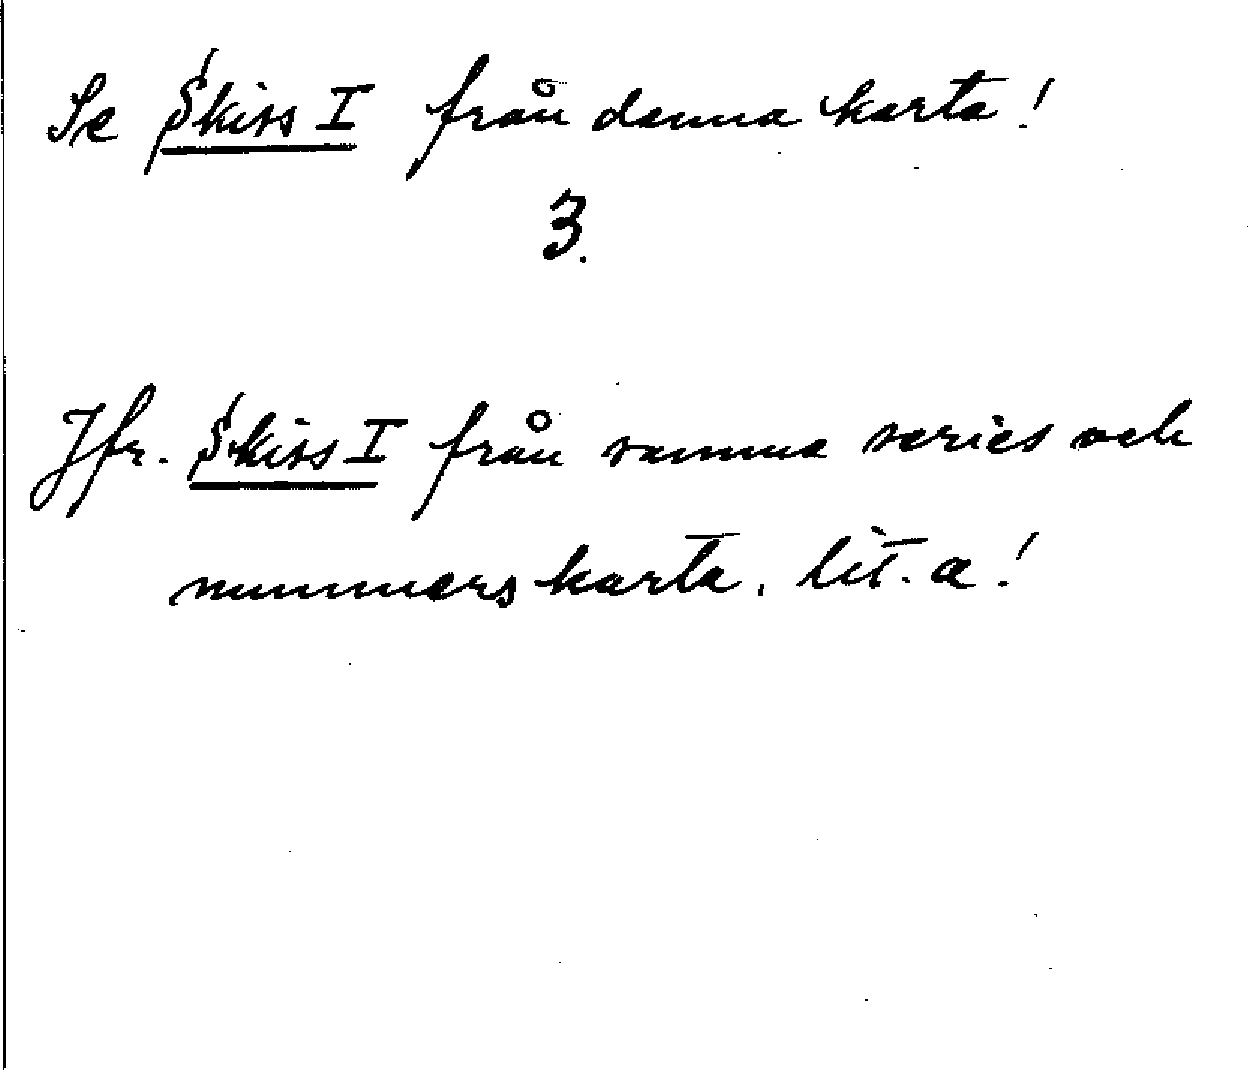 Se Skiss I från denna karta!
3.
Jfr. Skiss I från samma series och
nummers karta, lit. a!